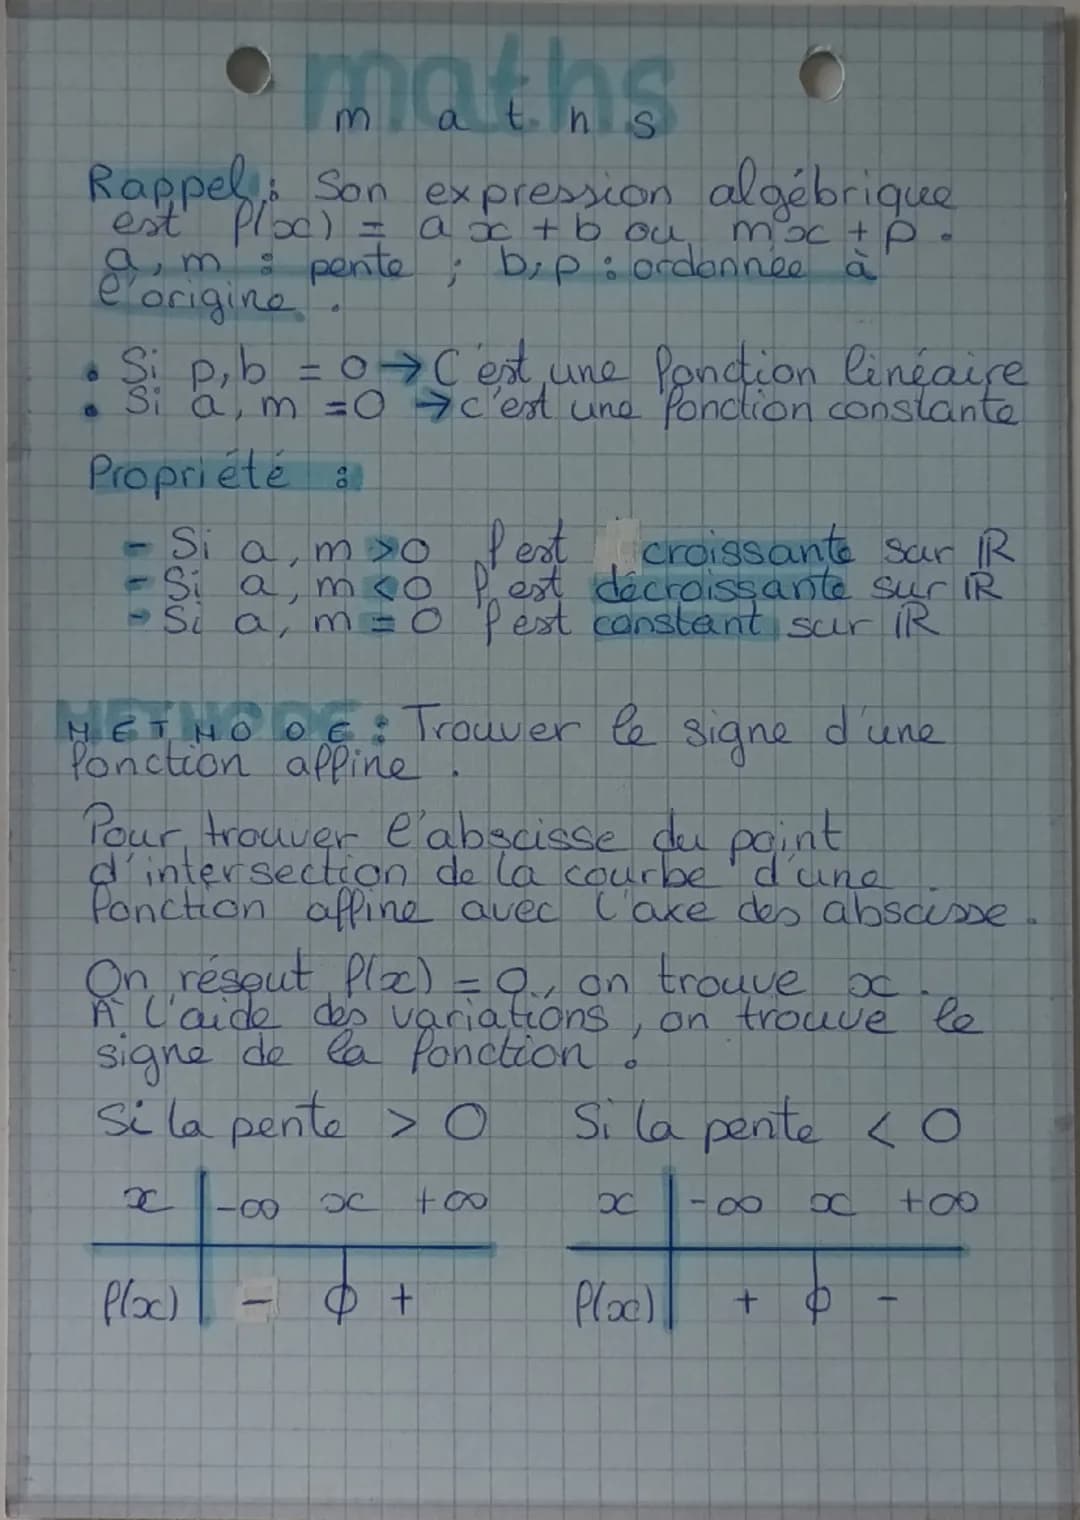 maths
m a t h s
Rappel : Son expression algébrique
est f(x) = ax + b ou mx + p.
a, m : pente ; b, p : ordonnée à
l'origine.
• Si p, b = 0 → C'est une fonction linéaire
• Si a, m = 0 → c'est une fonction constante
Propriété :
- Si a, m > 0 f est croissante sur ℝ
- Si a, m < 0 f est décroissante sur ℝ
- Si a, m = 0 f est constant sur ℝ
METHODE : Trouver le signe d'une
fonction affine.
Pour trouver l'abscisse du point
d'intersection de la courbe d'une
fonction affine avec l'axe des abscisse.
On résout f(x) = 0, on trouve x.
À l'aide des variations, on trouve le
signe de la fonction.
Si la pente > 0 Si la pente < 0
x -∞ x +∞ x -∞ x +∞
f(x) - 0 + f(x) + 0 -